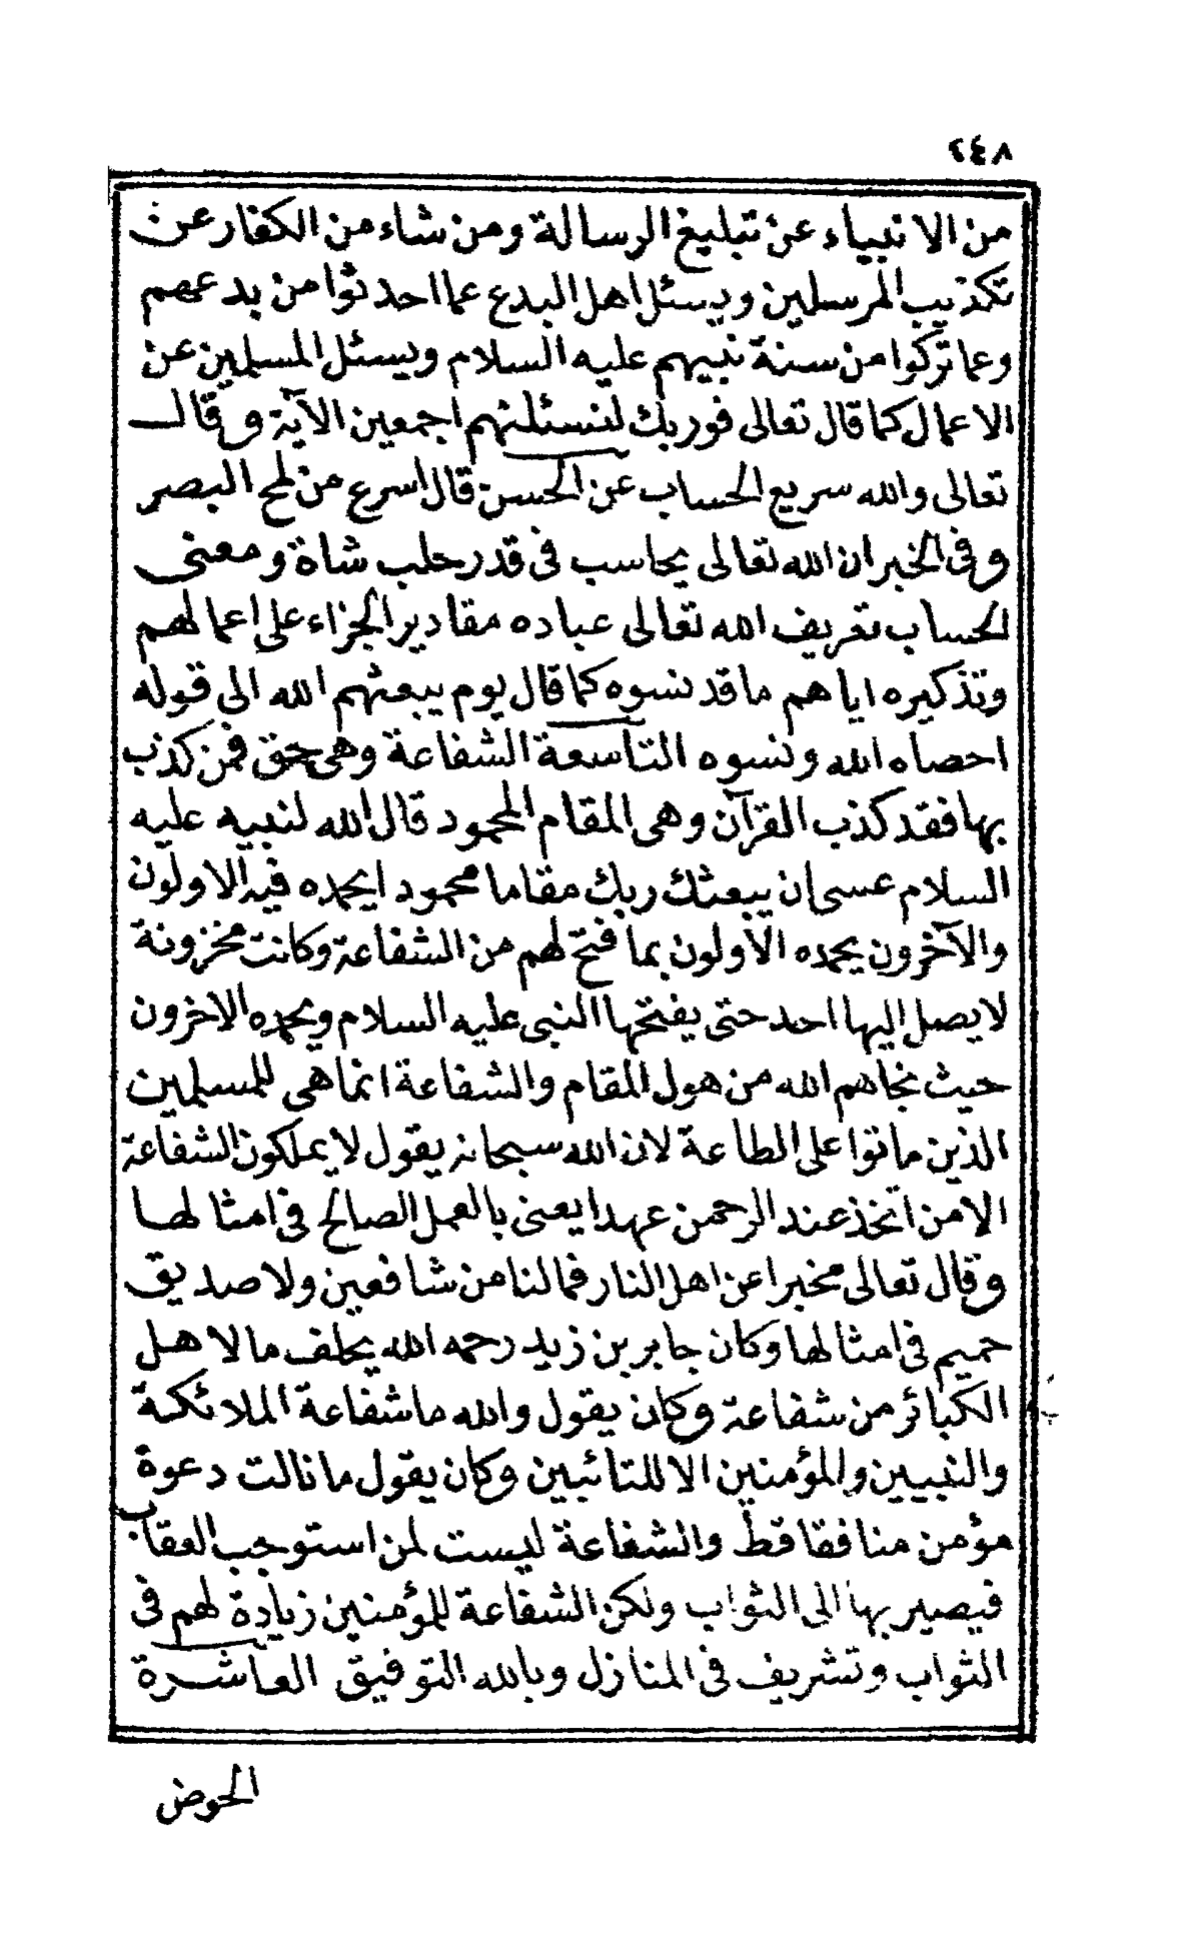 ٢٤٨
من الانبياء عن تبليغ الرسالة ومن شاء من الكفار عن
تكذيب المرسلين ويسئل اهل البدع عما احدثوا من بدعهم
وعما تركوا من سنة نبيهم عليه السلام ويسئل المسلمين عن
الاعمال كما قال تعالى فوربك لنسئلنهم اجمعين الآية وقال
تعالى والله سريع الحساب عن الحسن قال اسرع من لمح البصر
وفى الخبر ان الله تعالى يحاسب فى قدر حلب شاة ومعنى
الحساب تعريف الله تعالى عباده مقادير الجزاء على اعمالهم
وتذكيره اياهم ما قد نسوه كما قال يوم يبعثهم الله الى قوله
احصاه الله ونسوه التاسعة الشفاعة وهى حق فمن كذب
بها فقد كذب القرآن وهى المقام المحمود قال الله لنبيه عليه
السلام عسى ان يبعثك ربك مقاما محمودا يحمده فيه الاولون
والآخرون يحمده الاولون بما فتح لهم من الشفاعة وكانت مخزونة
لا يصل اليها احد حتى يفتحها النبى عليه السلام ويحمده الاخرون
حيث نجاهم الله من هول المقام والشفاعة انما هى للمسلمين
الذين ماتوا على الطاعة لان الله سبحانه يقول لا يملكون الشفاعة
الا من اتخذ عند الرحمن عهدا يعنى بالعمل الصالح فى امثالها
وقال تعالى مخبرا عن اهل النار فمالنا من شافعين ولا صديق
حميم فى امثالها وكان جابر بن زيد رحمه الله يحلف ما لاهل
الكبائر من شفاعة وكان يقول والله ما شفاعة الملائكة
والنبيين والمؤمنين الا للتائبين وكان يقول ما نالت دعوة
مؤمن منافقا قط والشفاعة ليست لمن استوجب العقاب
فيصير بها الى الثواب ولكن الشفاعة للمؤمنين زيادة لهم فى
الثواب وتشريف فى المنازل وبالله التوفيق العاشرة
الحوض